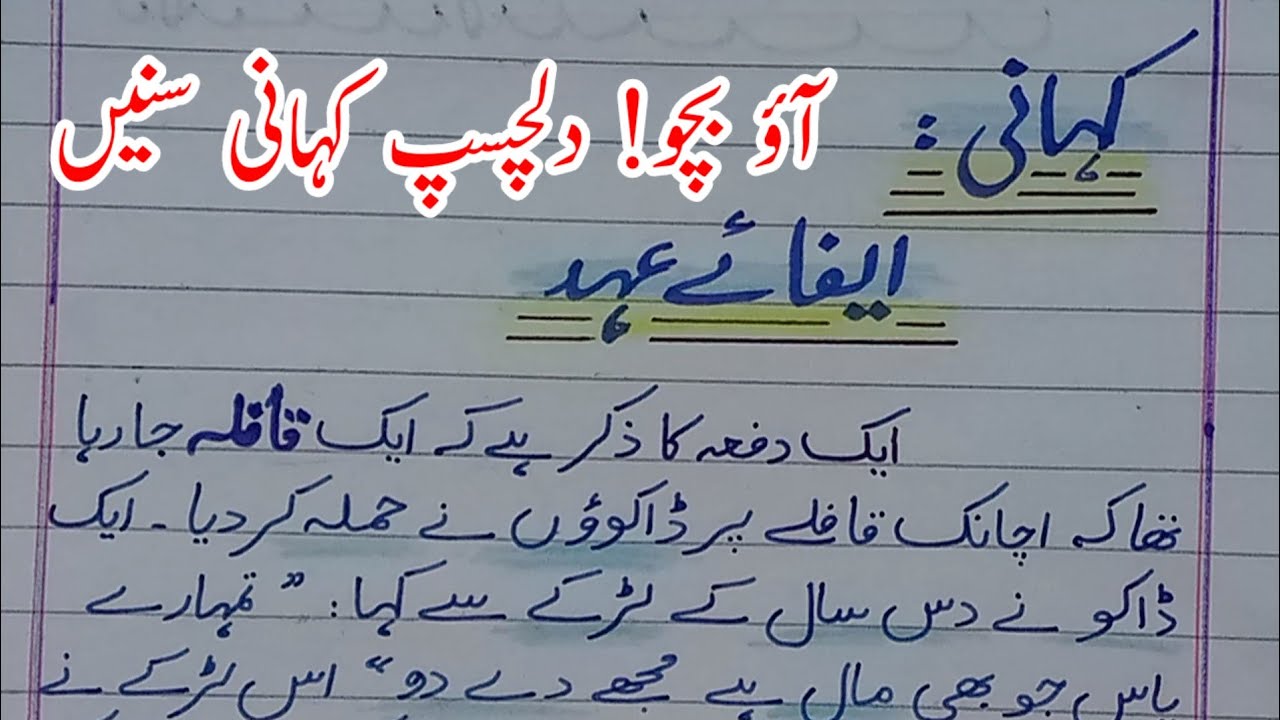 کہانی :
آؤ بچو! دلچسپ کہانی سنیں
ایفائے عہد
ایک دفعہ کا ذکر ہے کہ ایک قافلہ جا رہا
تھا کہ اچانک قافلے پر ڈاکوؤں نے حملہ کر دیا ۔ ایک
ڈاکو نے دس سال کے لڑکے سے کہا : ” تمہارے
پاس جو بھی مال ہے مجھے دے دو “ اس لڑکے نے